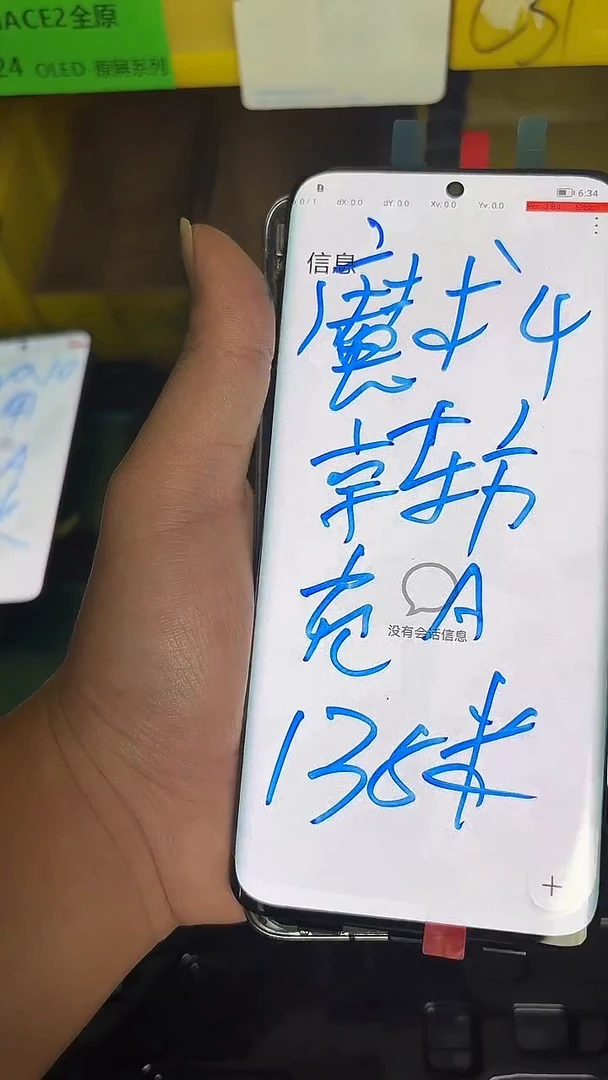 ACE2全原
24 OLED-原屏系列
6:34
0 / 1 dX: 0.0 dY: 0.0 Xv: 0.0 Yv: 0.0
信息
魔术4
京东方
A
没有会话信息
米
+